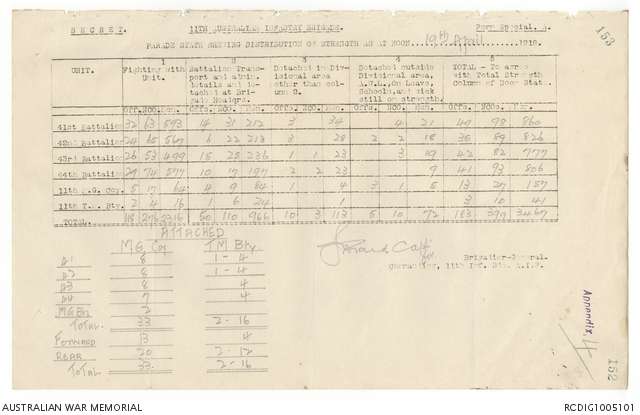 SECRET. 11TH AUSTRALIAN INFANTRY BRIGADE. Form Special. A. 153
PARADE STATE SHEWING DISTRIBUTION OF STRENGTH AS AT NOON 19th April 1918.
UNIT. 1 Fighting with Unit. 2 Battalion Transport and admin. details and attached at Brigade Headqrs. 3 Detached in Divisional area other than column 2. 4 Detached outside Divisional area, A.G.L., On Leave, Schools, and sick still on strength. 5 TOTAL - To agree with Total Strength Column of Door State.
Offs. NCOs. Men. Offs. NCOs. Men. Offs. NCOs. Men. Offs. NCOs. Men. Offs. NCOs. Men.
41st Battalion 32 63 593 14 31 212 3 34 4 21 49 98 860
42nd Battalion 24 65 567 6 22 213 3 28 2 2 18 35 89 826
43rd Battalion 26 53 499 15 25 236 1 1 23 3 19 42 82 777
44th Battalion 29 74 577 10 17 197 2 2 23 9 41 93 806
11th M.G. Coy. 5 17 64 4 9 84 1 4 3 1 5 13 27 157
11th T.M. Bty. 2 4 16 1 6 24 1 3 10 41
TOTAL. 118 276 2316 50 110 966 10 3 113 5 10 72 183 399 3467
ATTACHED
MG Coy TM Bty
D1 8 1 - 4
D2 8 1 - 4
D3 8 4
D4 7 4
MG Bn 2
TOTAL 33 2 - 16
FORWARD 13 4
REAR 20 2 - 12
TOTAL 33 2 - 16
Brigadier-General.
Commanding, 11th Inf. Bde. A.I.F.
Appendix 4
152
AUSTRALIAN WAR MEMORIAL RCDIG1005101